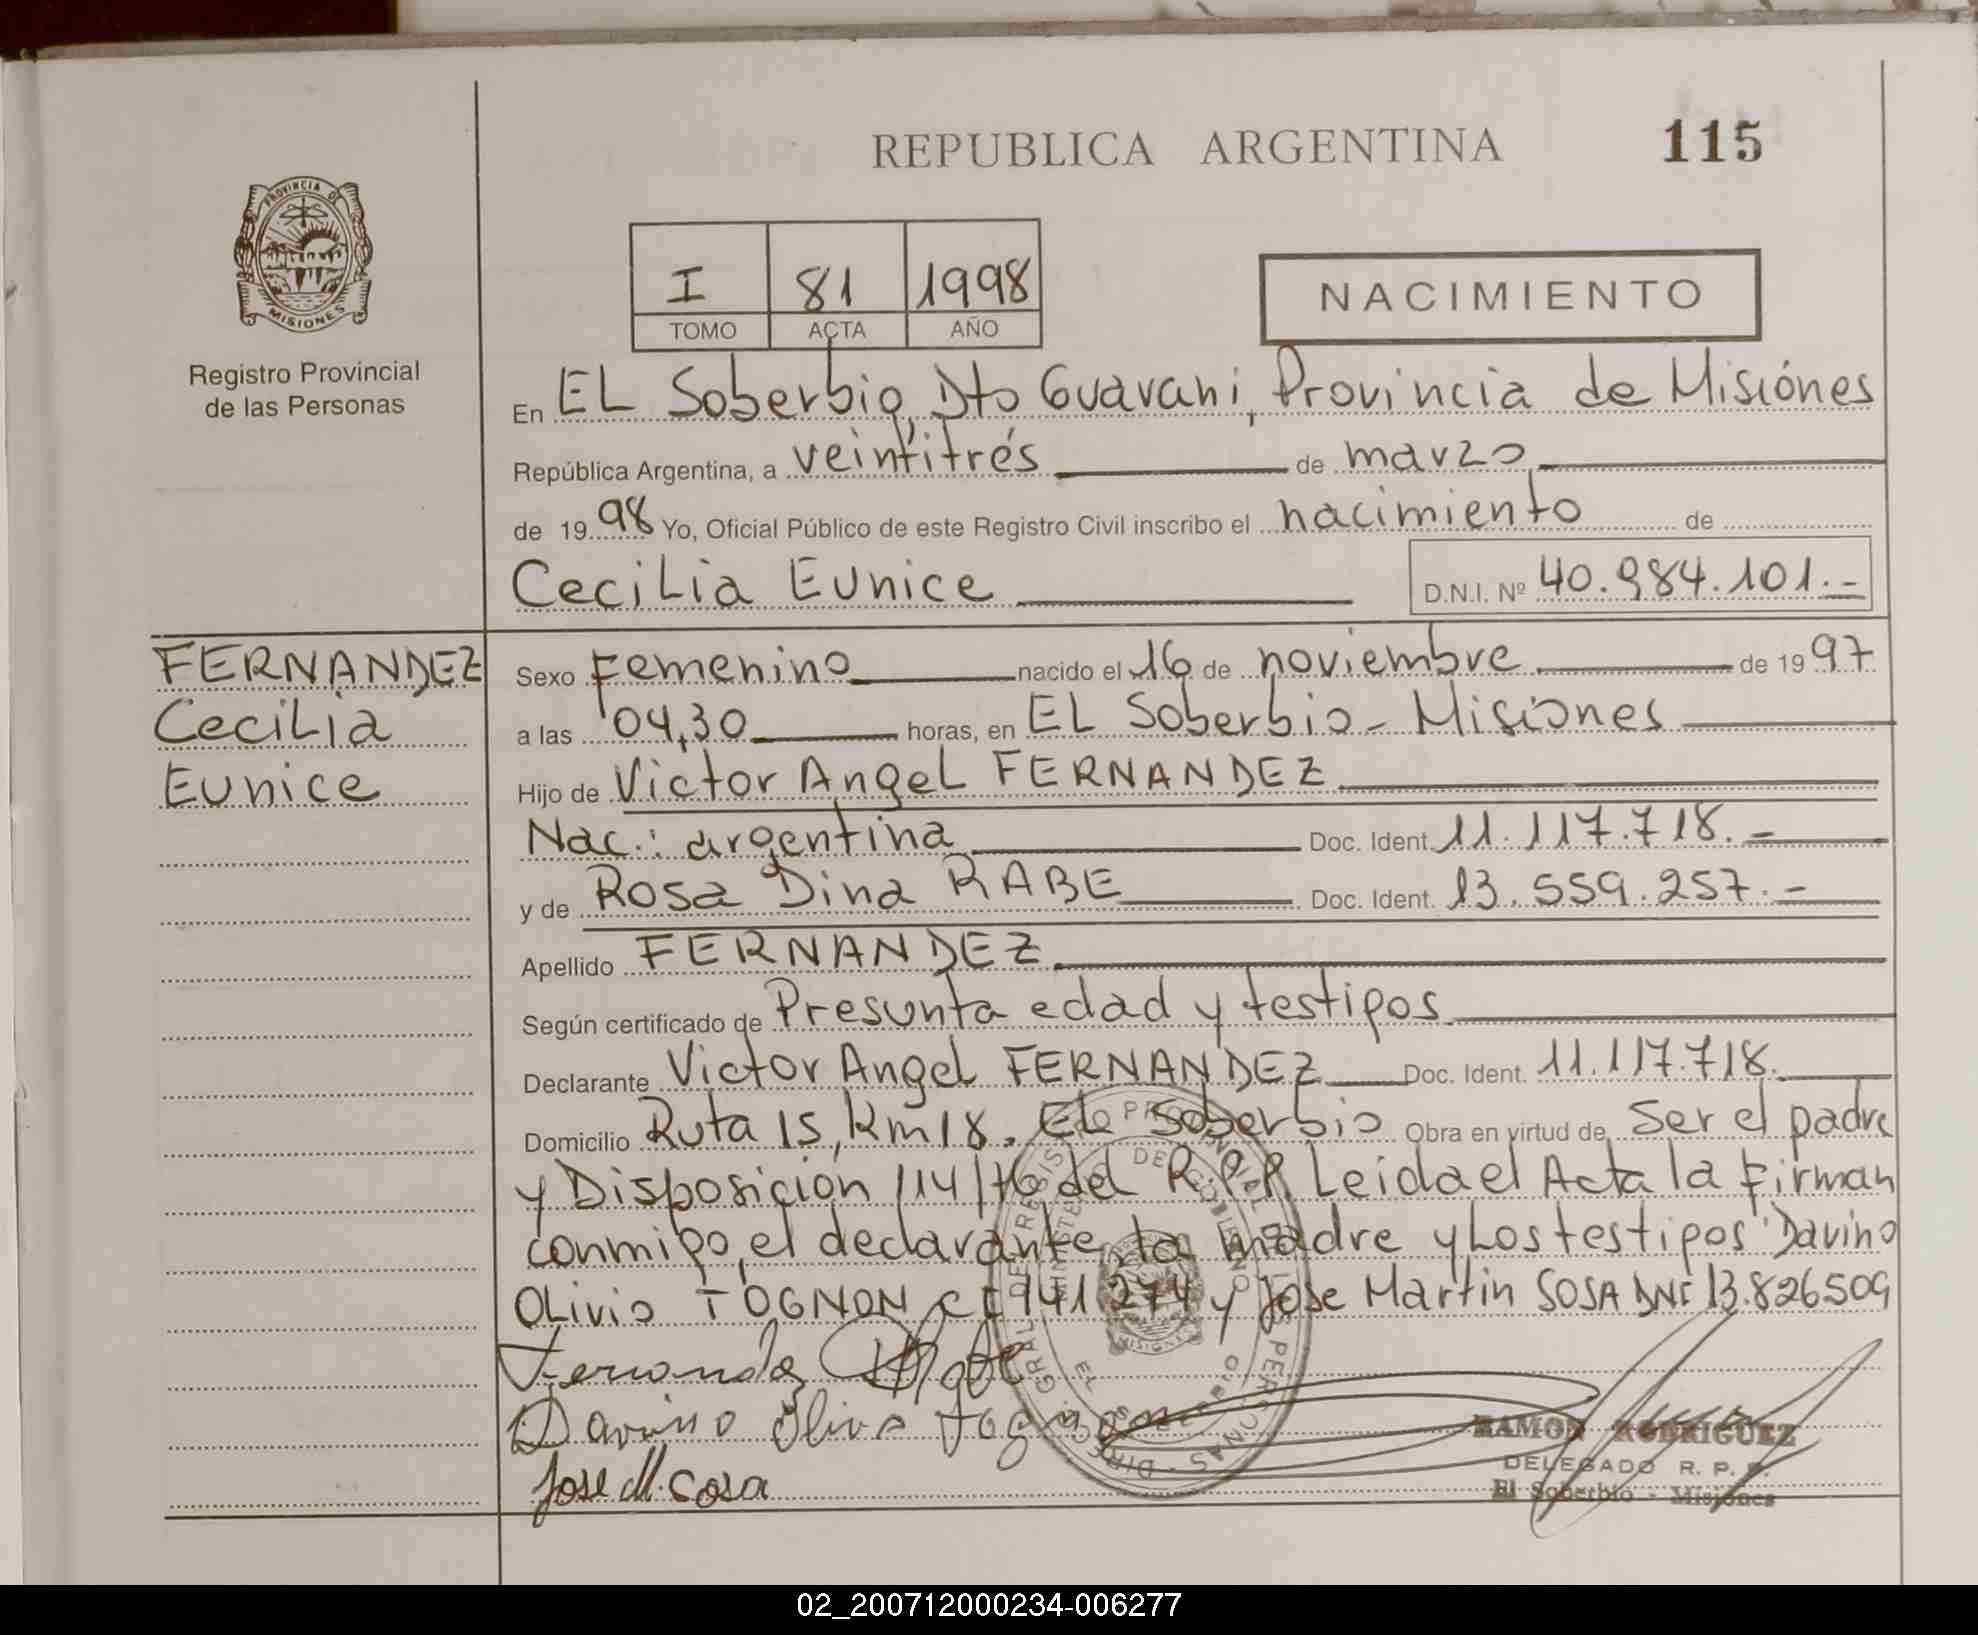 REPUBLICA ARGENTINA 115
PROVINCIA DE MISIONES
Registro Provincial
de las Personas
I 81 1998
TOMO ACTA AÑO
NACIMIENTO
En EL Soberbio, Dto Guarani, Provincia de Misiónes
República Argentina, a veintitrés de marzo
de 1998 Yo, Oficial Público de este Registro Civil inscribo el nacimiento de
Cecilia Eunice D.N.I. Nº 40.984.101.-
FERNANDEZ
Cecilia
Eunice
Sexo Femenino nacido el 16 de noviembre de 1997
a las 04,30 horas, en EL Soberbio - Misiones
Hijo de Victor Angel FERNANDEZ
Nac.: argentina Doc. Ident. 11.117.718.-
y de Rosa Dina RABE Doc. Ident. 13.559.257.-
Apellido FERNANDEZ
Según certificado de Presunta edad y testigos
Declarante Victor Angel FERNANDEZ Doc. Ident. 11.117.718.
Domicilio Ruta 15, km 18. EL Soberbio Obra en virtud de Ser el padre
y Disposición 114/76 del R.P.P. Leida el Acta la firman
conmigo, el declarante, la madre y Los testigos Davino
OLivio TOGNON CI 941.274 y Jose Martin SOSA DNI 13.826509
Davino Olivo Tognon
Jose M. Sosa
RAMON RODRIGUEZ
DELEGADO R. P. P.
El Soberbio - Misiones
02_200712000234-006277